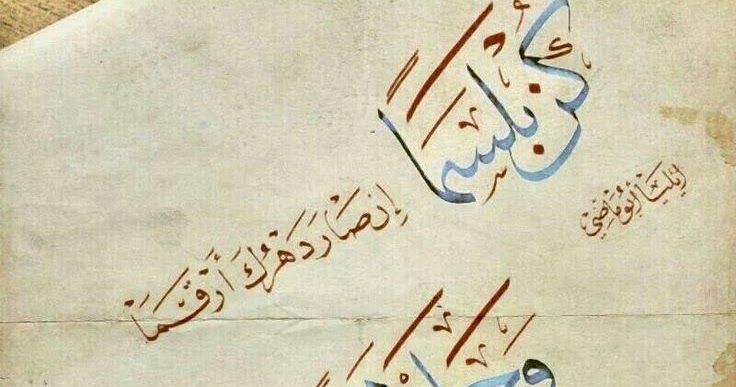 كُنْ بَلْسَمًا
إِنْ صَارَ دَهْرُكَ أَرْقَمَا
إيليا أبو ماضي